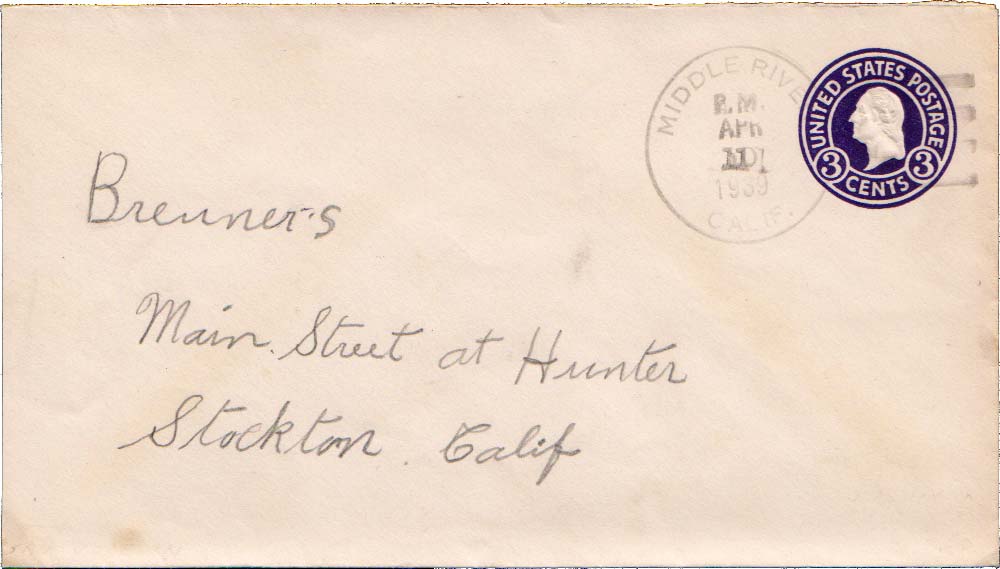 MIDDLE RIVE
P.M.
APR
11
1939
CALIF.
UNITED STATES POSTAGE
3 CENTS 3
Breuner's
Main Street at Hunter
Stockton. Calif